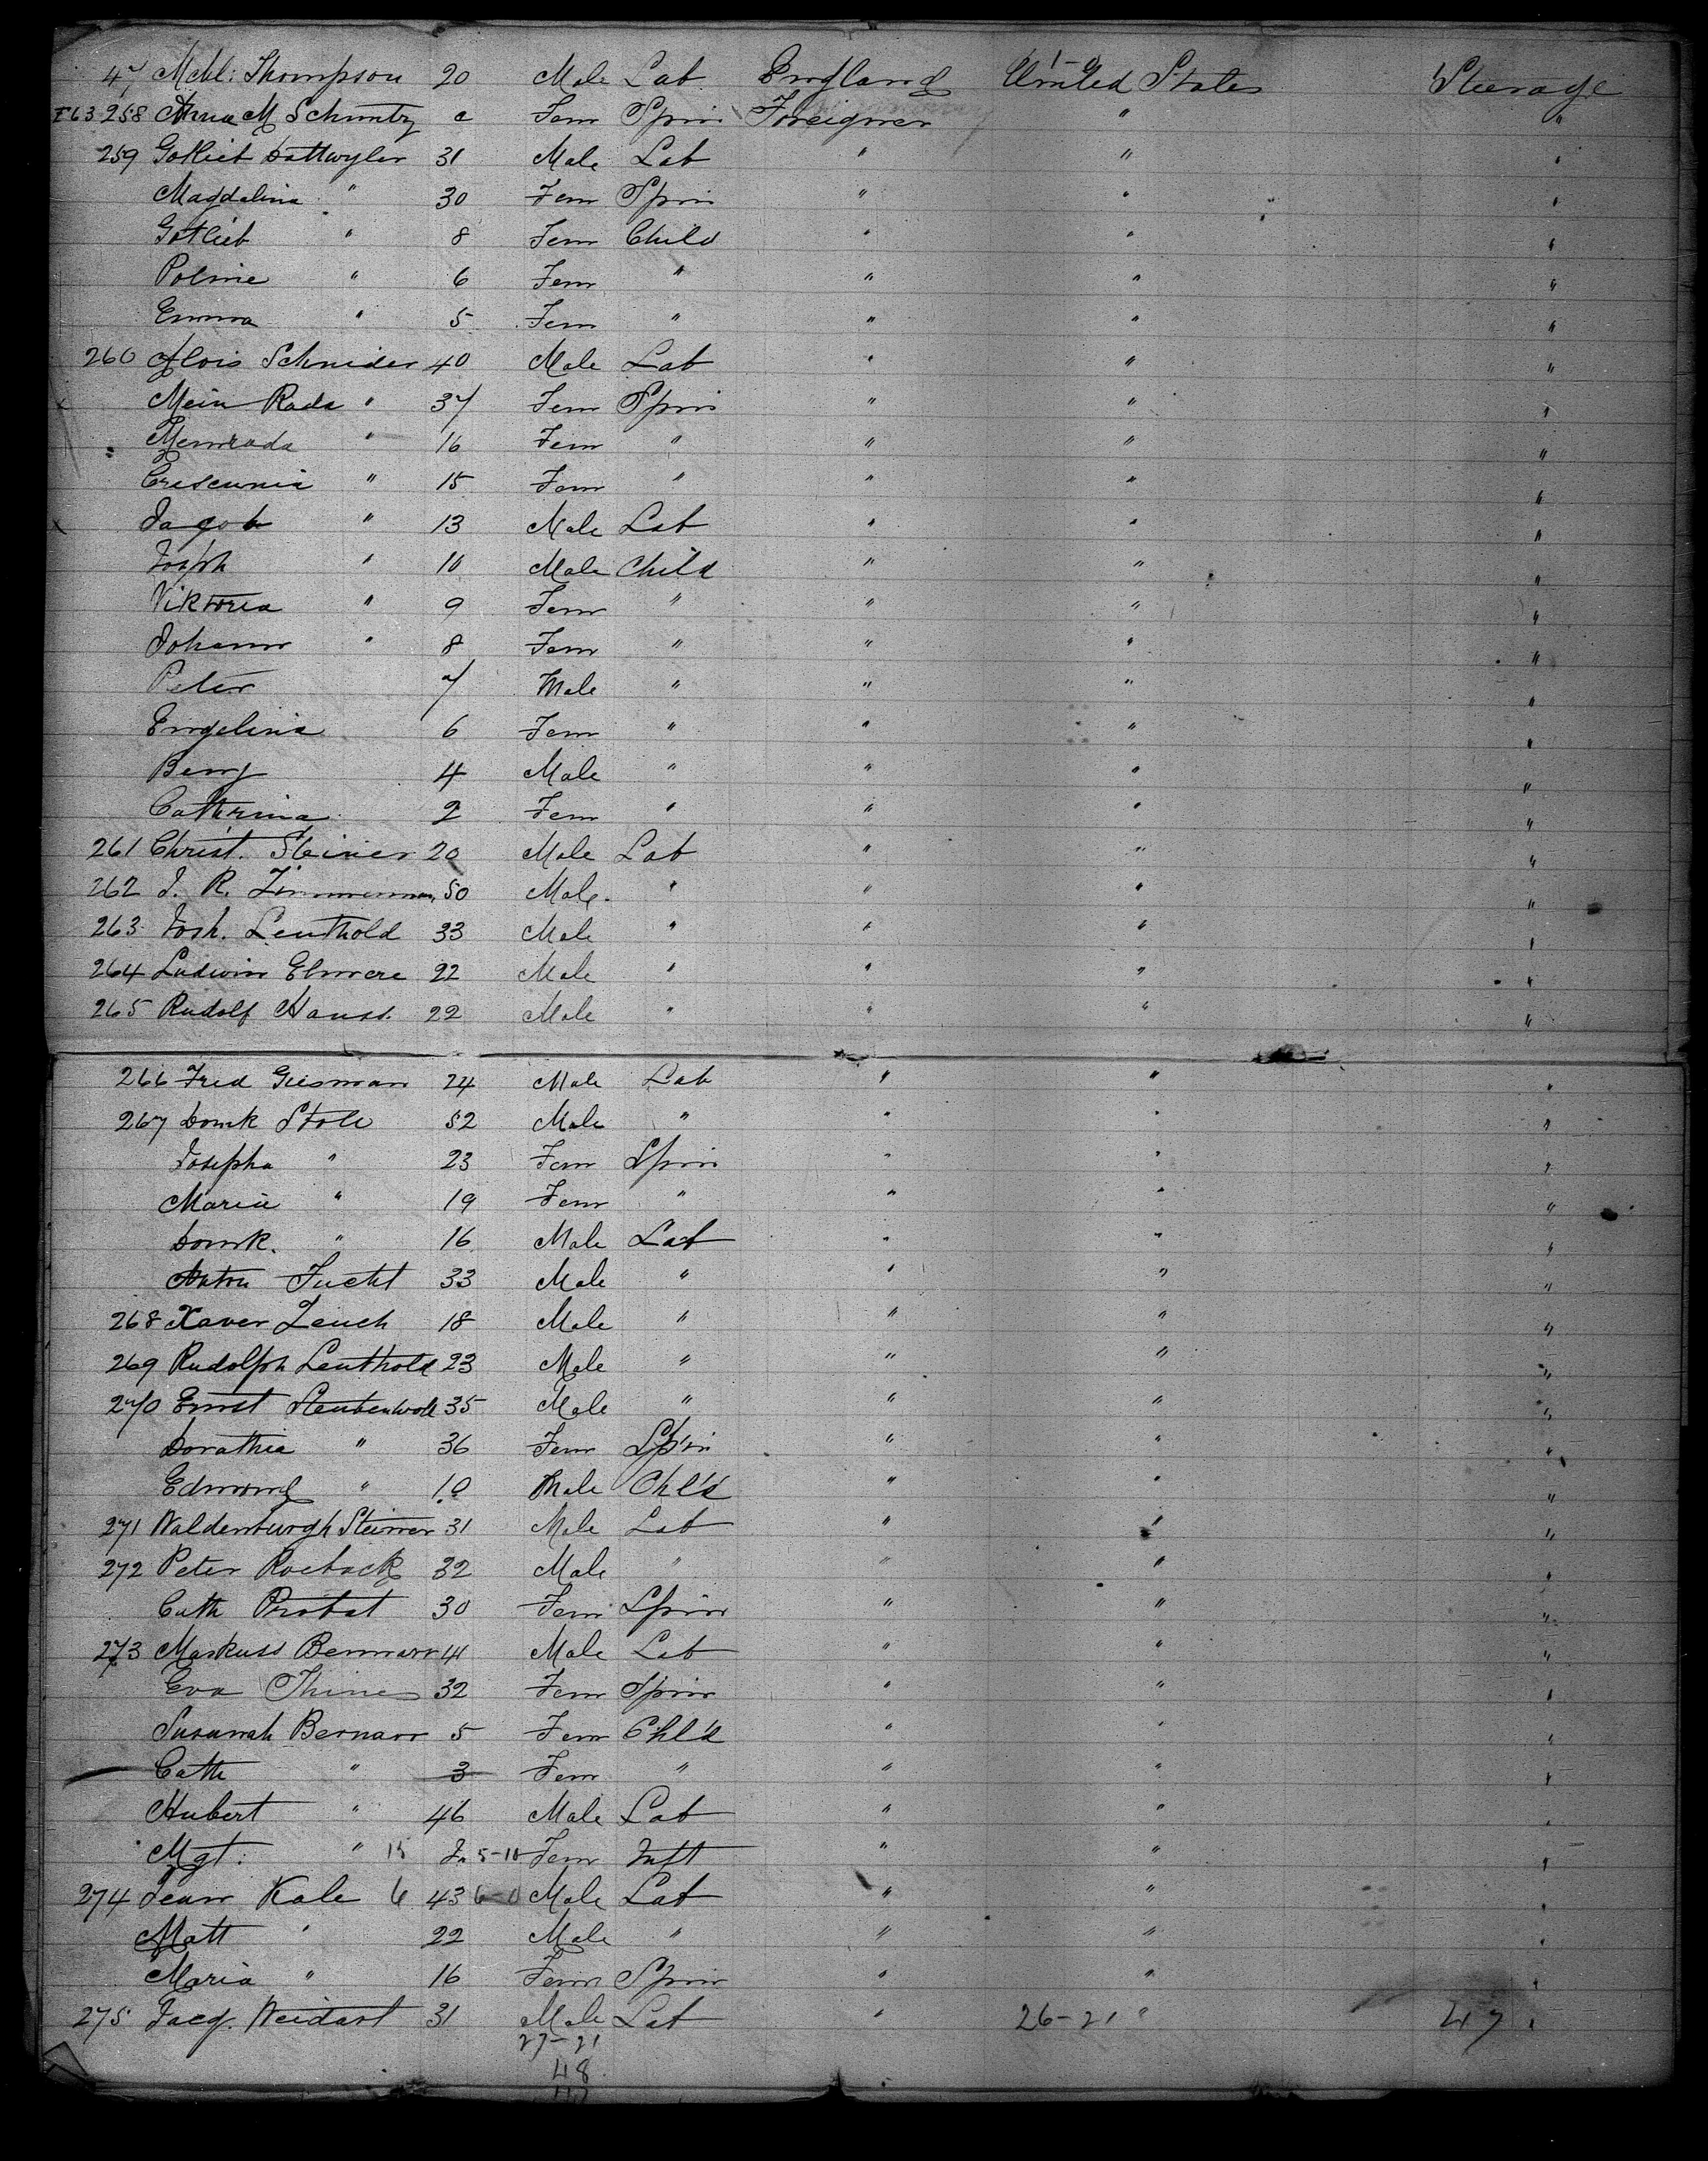 47 Mchl: Thompson 20 Male Lab England United States Steerage
258 Anna M Schmitz Fem Spin Foreigner " "
259 Gotlieb Dattwyler 31 Male Lab " " "
Magdalina " 30 Fem Spin " " "
Gotlieb " 8 Fem Child " " "
Poline " 6 Fem " " " "
Emma " 5 Fem " " " "
260 Alois Schneider 40 Male Lab " " "
Mein Rada " 37 Fem Spin " " "
Menrada " 16 Fem " " " "
Crescunia " 15 Fem " " " "
Jacob " 13 Male Lab " " "
Joseph " 10 Male Child " " "
Viktoria " 9 Fem " " " "
Johann " 8 Fem " " " "
Peter 7 Male " " " "
Engelina 6 Fem " " " "
Benj 4 Male " " " "
Cathrina 2 Fem " " " "
261 Christ. Steiner 20 Male Lab " " "
262 J. R. Zimmerman 50 Male " " " "
263 Josh. Leuthold 33 Male " " " "
264 Ludwin Elmere 22 Male " " " "
265 Rudolf Hauss. 22 Male " " " "
266 Fred Giesman 24 Male Lab " " "
267 Domk Stoll 52 Male " " " "
Josepha " 23 Fem Spin " " "
Maria " 19 Fem " " " "
Domk. " 16 Male Lab " " "
Anton Fucht 33 Male " " " "
268 Xaver Zench 18 Male " " " "
269 Rudolph Leuthold 23 Male " " " "
270 Ernst 35 Male " " " "
Dorathia " 36 Fem Spin " " "
Edmond " 10 Male Chl'd " " "
271 Waldenburgh Steiner 31 Male Lab " " "
272 Peter Roeback 32 Male " " " "
Cath Probst 30 Fem Spin " " "
273 Markuss Bernarr 41 Male Lab " " "
Eva Thines 32 Fem Spin " " "
Susannah Bernarr 5 Fem Chl'd " " "
Cath " 3 Fem " " " "
Hubert " 46 Male Lab " " "
Mgt: " 15 5-10 Fem Inft " " "
274 Jean Kale 6 43 Male Lab " " "
Matt " 22 Male " " " "
Maria " 16 Fem Spin " " "
275 Jacq. Weidart 31 Male Lab " 26-21 " 47 "
27-21
48